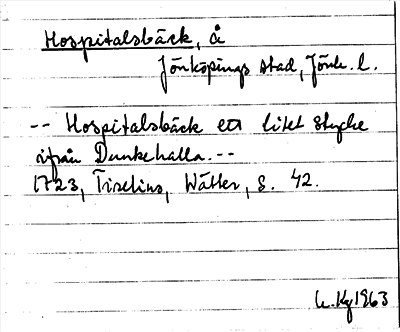 Hospitalsbäck, å
Jönköpings stad, Jönk. l.
-- Hospitalsbäck ett litet stycke
ifrån Dunkehalla. --
1723, Tiselius, Wätter, S. 42.
1963